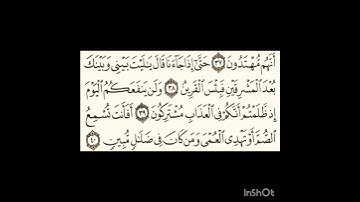 أَنَّهُم مُّهْتَدُونَ ٣٧ حَتَّىٰ إِذَا جَآءَنَا قَالَ يَٰلَيْتَ بَيْنِى وَبَيْنَكَ
بُعْدَ ٱلْمَشْرِقَيْنِ فَبِئْسَ ٱلْقَرِينُ ٣٨ وَلَن يَنفَعَكُمُ ٱلْيَوْمَ
إِذ ظَّلَمْتُمْ أَنَّكُمْ فِى ٱلْعَذَابِ مُشْتَرِكُونَ ٣٩ أَفَأَنتَ تُسْمِعُ
ٱلصُّمَّ أَوْ تَهْدِى ٱلْعُمْىَ وَمَن كَانَ فِى ضَلَٰلٍ مُّبِينٍ ٤٠
InShOt